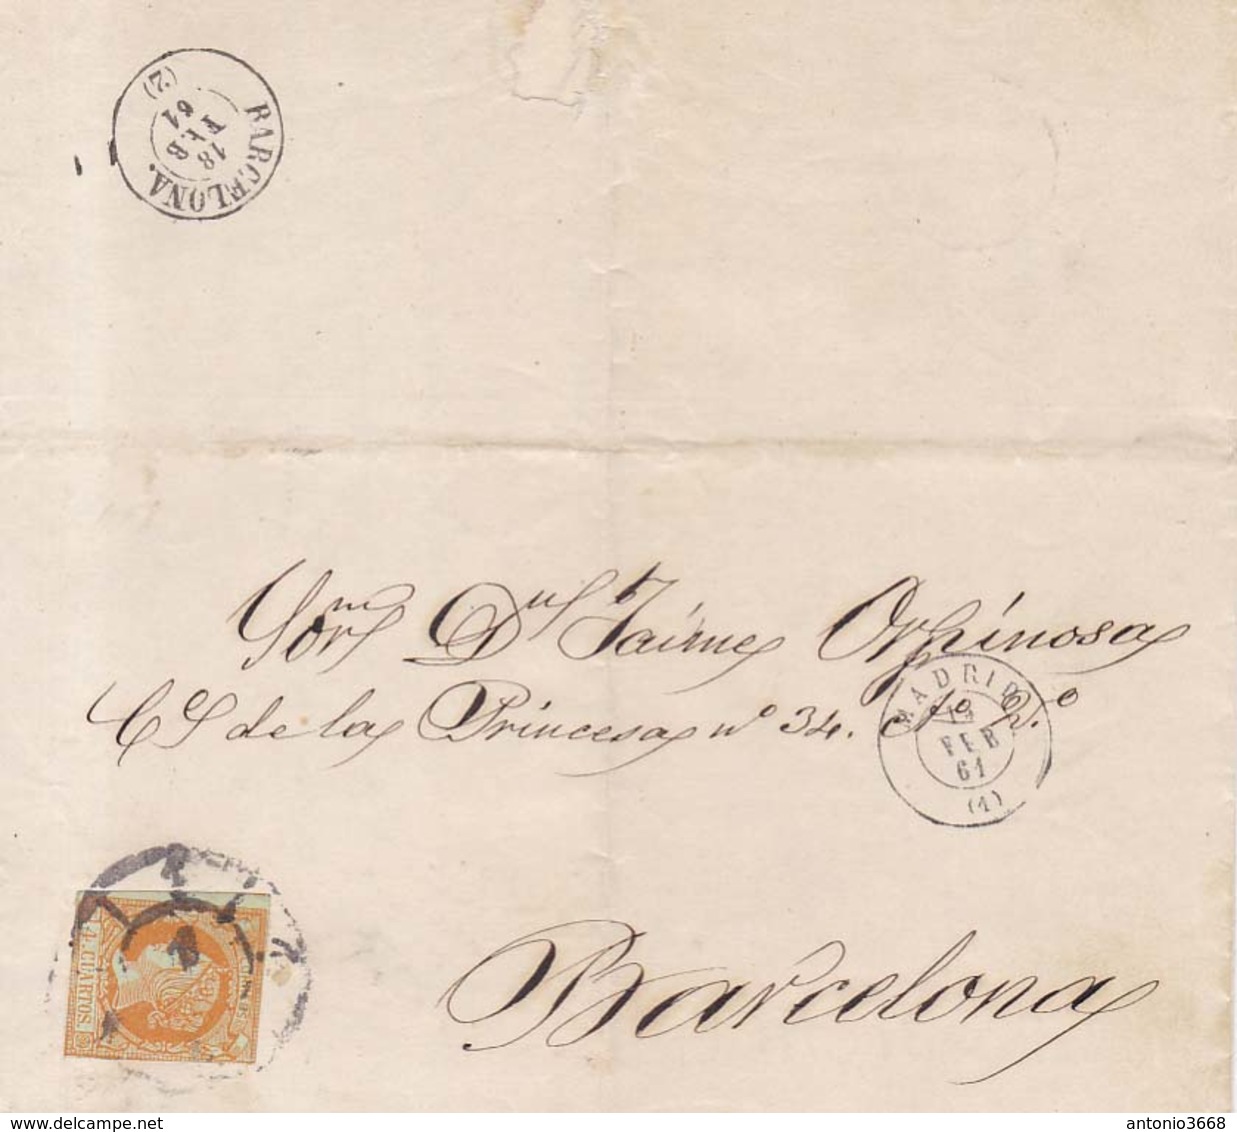 BARCELONA.
18
FEB
61
(2)
Sor. Dn. Jaime Orpinosa
Ce. de la Princesa nº 34. cto 2.º
MADRID
FEB
61
(1)
4. CUARTOS.
1
Barcelona
delcampe.net
antonio3668